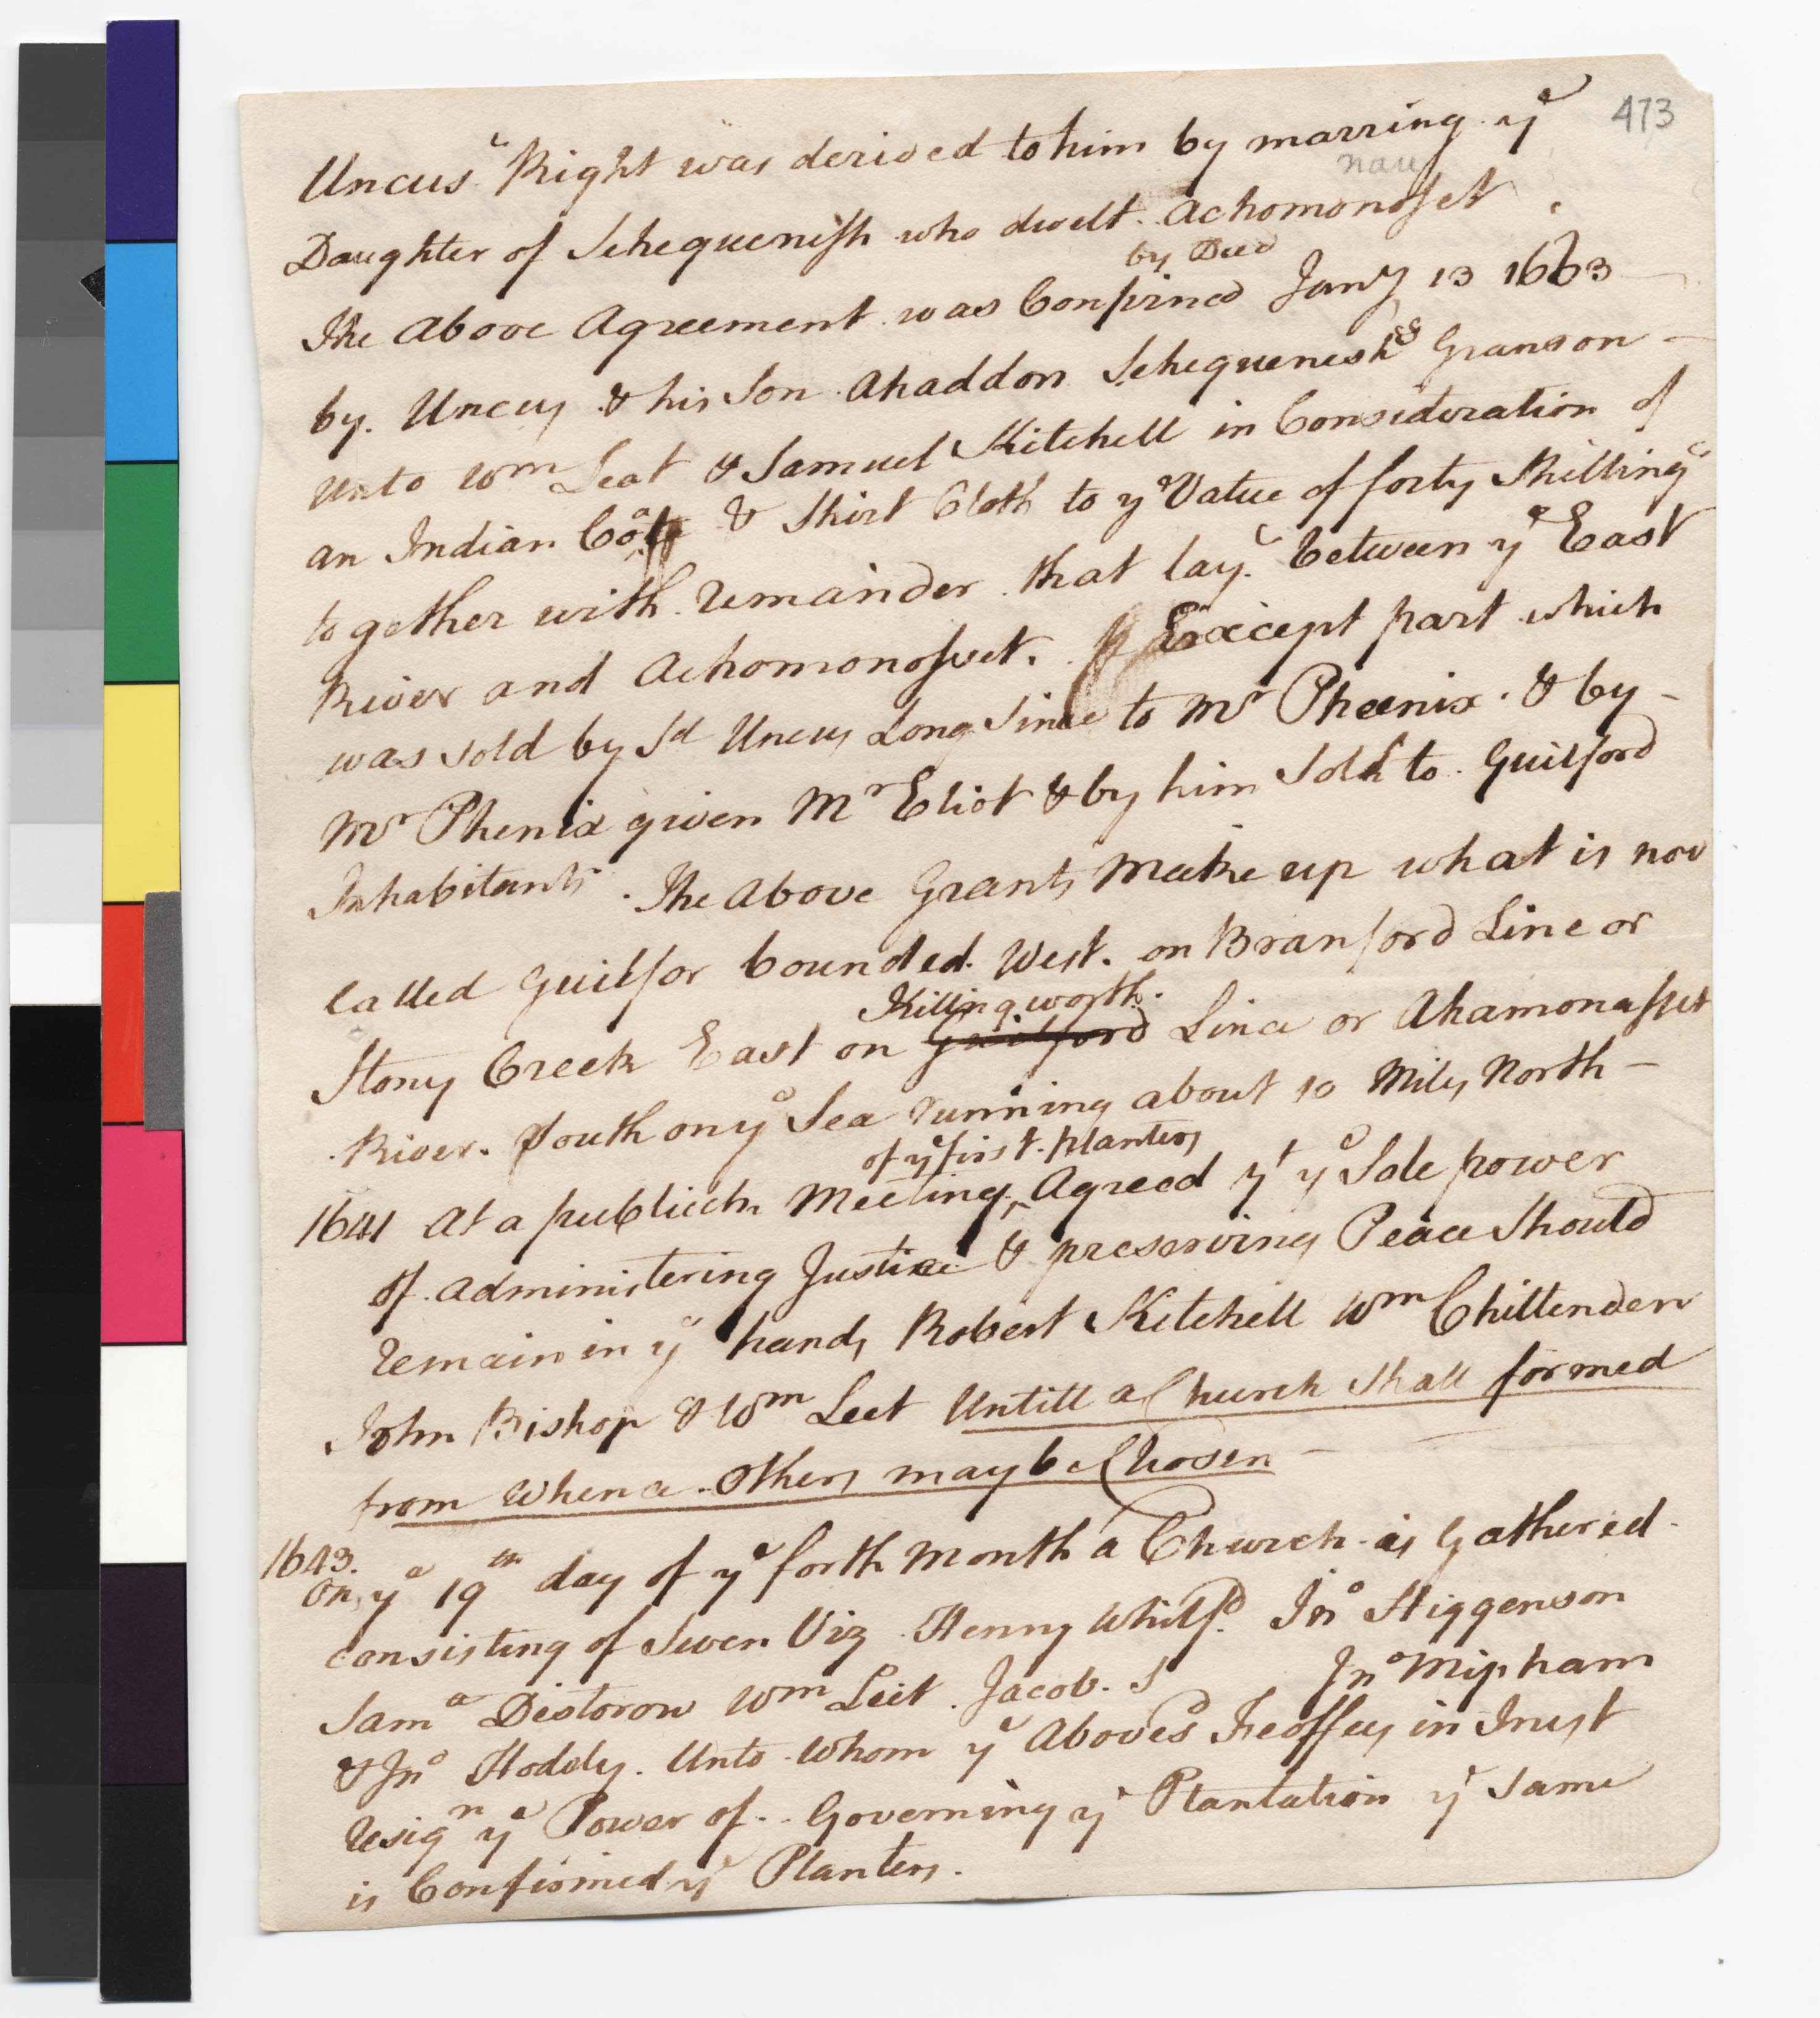 473
Uncus' Right was derived to him by marring ye
nau
Daughter of Sehequenish who dwelt. Achomonosset
by Deed
The Above Agreement was Confirmed Jany 13 1663
by. Uncus & his Son Ahaddon Sehequenesh's Granson
unto Wm Leat & Samuel Kitchell in Consideration of
an Indian Coat & Shirt Cloth to ye Value of forty Shillings
together with remainder that lay. between ye East
River and Achomonosset. Except part which
was sold by Sd Uncus Long Since to Mr Phœnix. & by
Mr Phenix given Mr Eliot & by him Sold to Guilford
Inhabitants. The Above Grants Make up what is now
Called Guilfor bounded West. on Branford Line or
Killingworth.
Stony Creek East on Guilford Line or Ahamonasset
River. South on ye Sea running about 10 Miles North
of ye first planters
1641 At a publick Meeting ‸ Agreed yt ye Sole power
of Administering Justice & preserving Peace Should
remain in ye hands Robert Kitchell Wm Chittenden
John Bishop & Wm Leet Untill a Church shall formed
from whence Others may be Chosen
1643.
On ye 19th day of ye forth Month a Church is Gathered
consisting of Seven Viz Henry Whitfd. Jno Higgenson
Sama Desborow Wm Leet. Jacob. S Jno Mipham
& Jno Hoddly. Unto Whom ye Abovesd Feoffes in Trust
Resign ye Power of. Governing ye Plantation ye same
is Confirmed ye Planters.